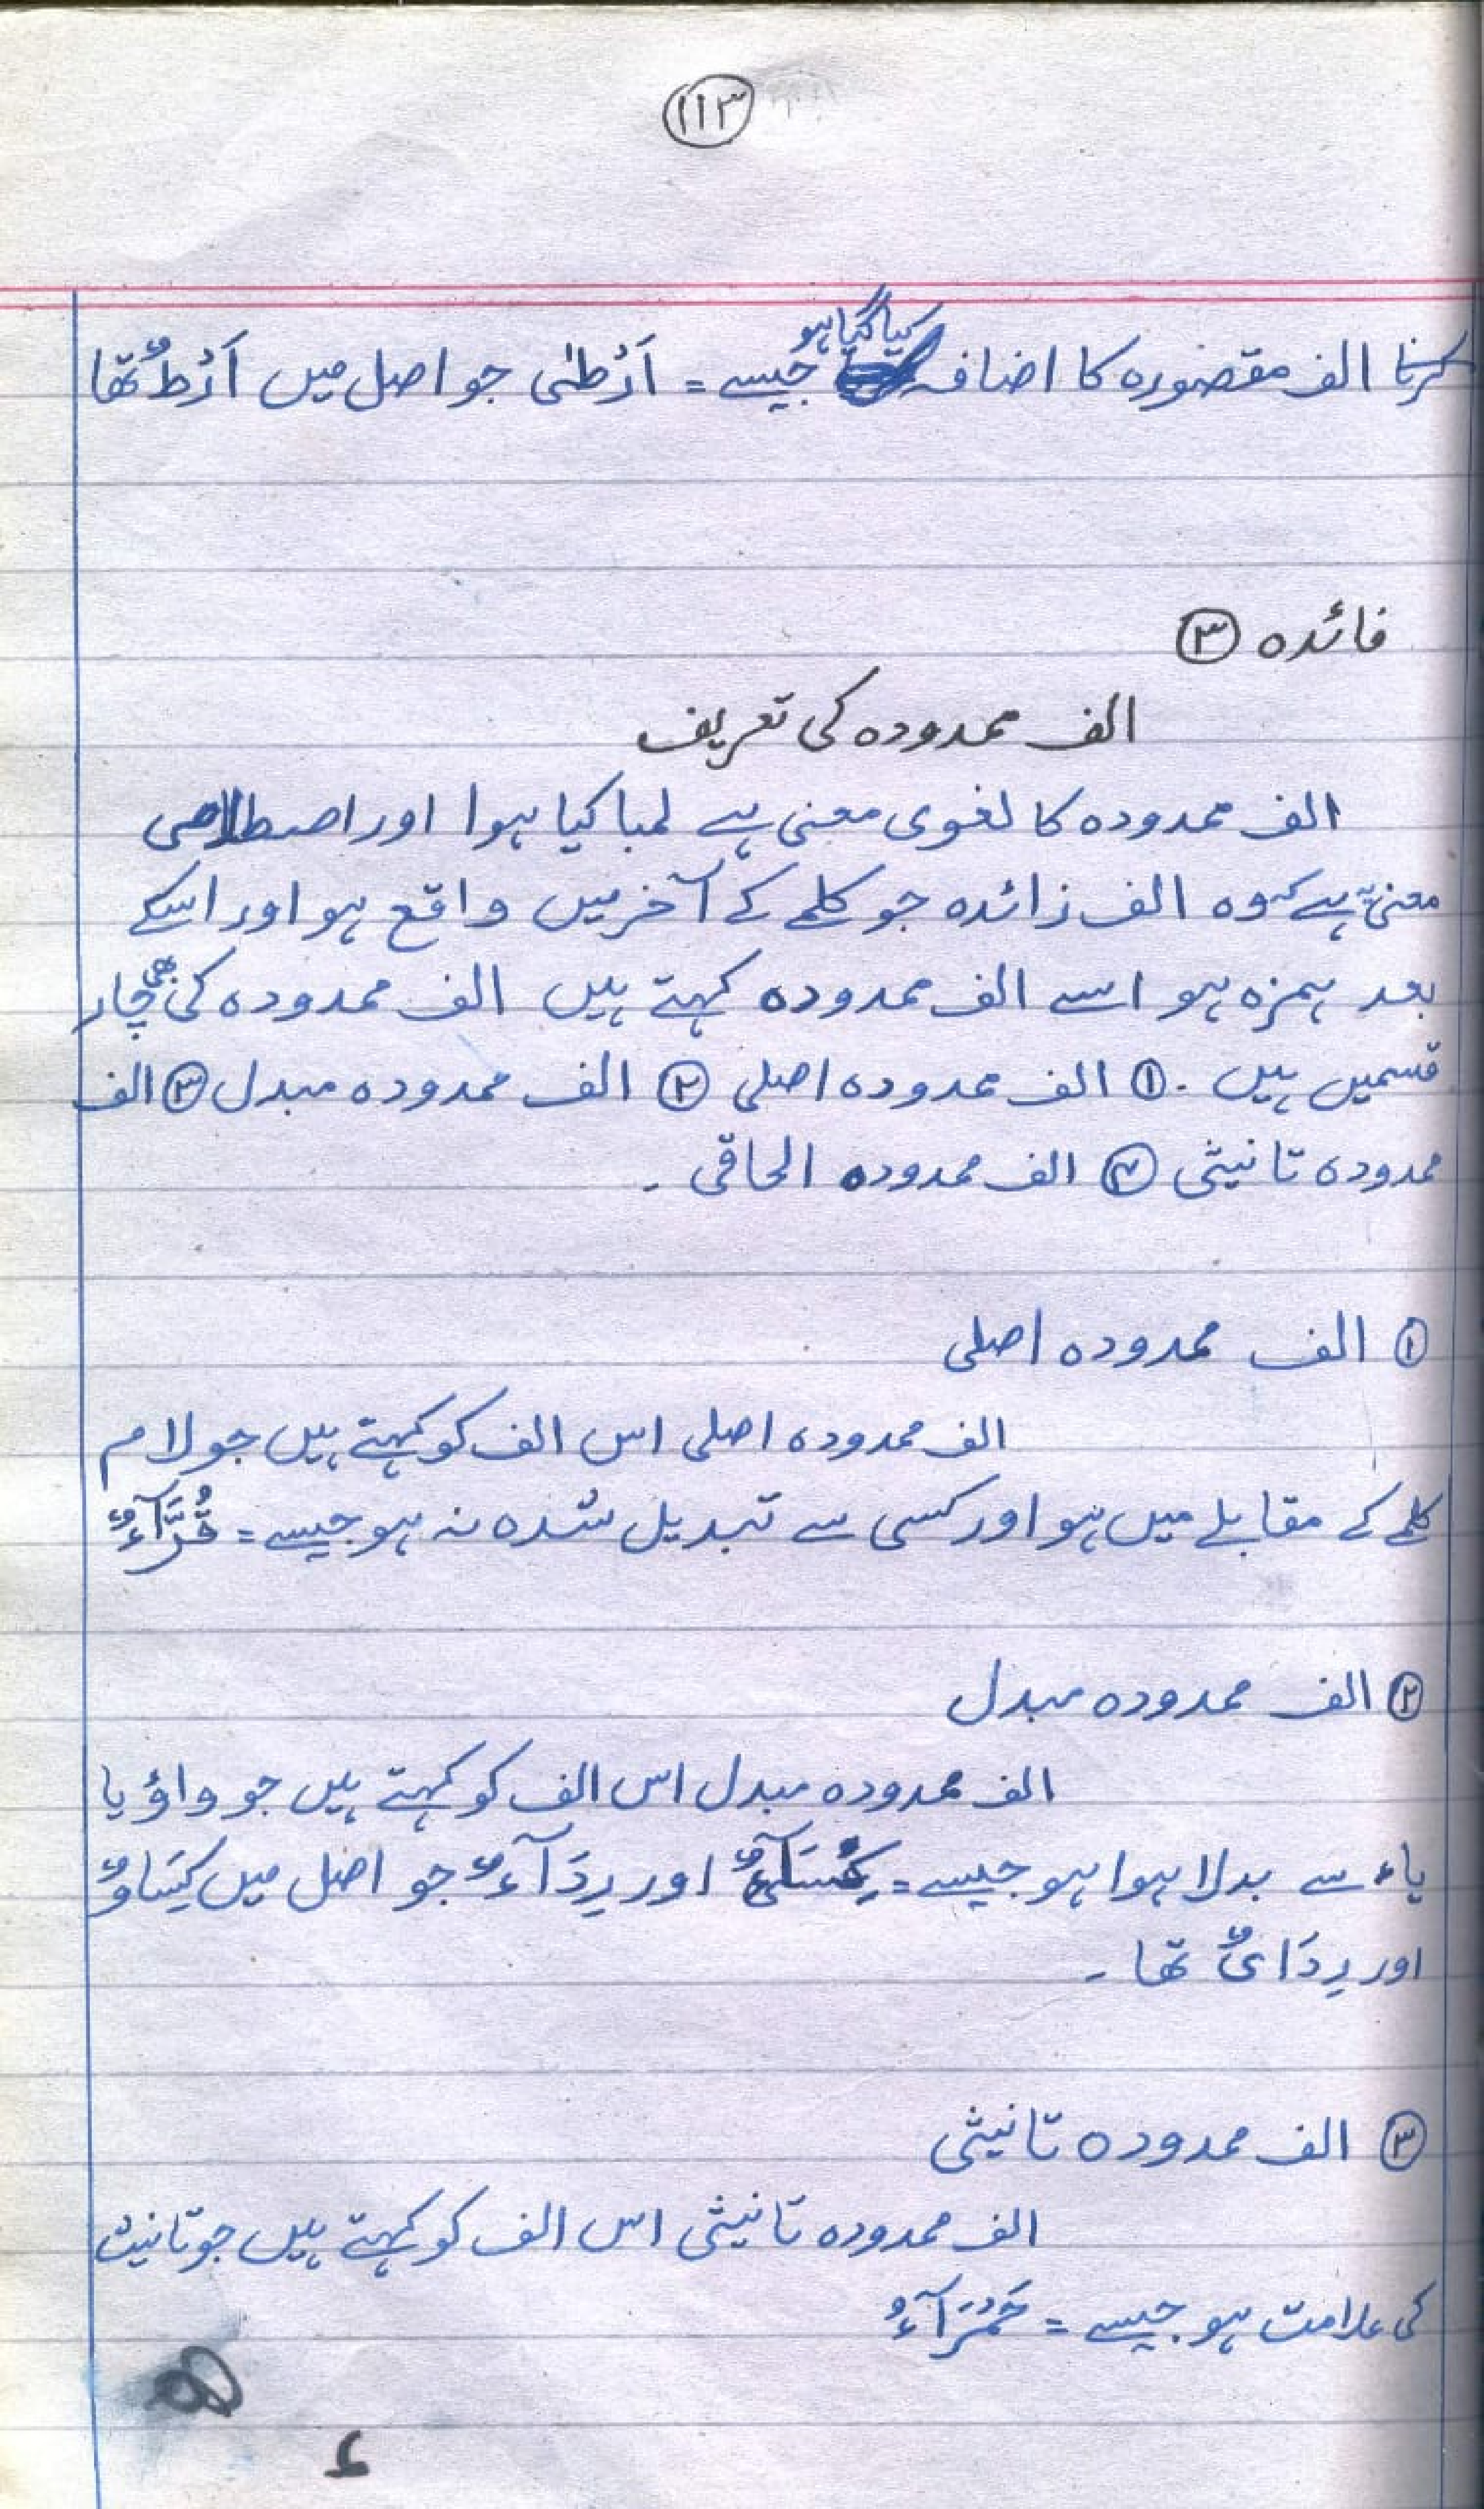 ١١٣
کرنا الف مقصورہ کا اضافہ کیا گیا ہو جیسے = اَرْطٰی جو اصل میں اَرْطٌ تھا
فائدہ ③
الف ممدودہ کی تعریف
الف ممدودہ کا لغوی معنی ہے لمبا کیا ہوا اور اصطلاحی
معنی ہے کہ وہ الف زائدہ جو کلمے کے آخر میں واقع ہو اور اسکے
بعد ہمزہ ہو اسے الف ممدودہ کہتے ہیں الف ممدودہ کی بھی چار
قسمیں ہیں ۔ ① الف ممدودہ اصلی ② الف ممدودہ مبدل ③ الف
ممدودہ تانیثی ④ الف ممدودہ الحاقی ۔
① الف ممدودہ اصلی
الف ممدودہ اصلی اس الف کو کہتے ہیں جو لام
کلمے کے مقابلے میں ہو اور کسی سے تبدیل شدہ نہ ہو جیسے = قُرَّآءٌ
② الف ممدودہ مبدل
الف ممدودہ مبدل اس الف کو کہتے ہیں جو واؤ یا
یاء سے بدلا ہوا ہو جیسے = کِسَآءٌ اور رِدَآءٌ جو اصل میں کِسَاوٌ
اور رِدَایٌ تھا ۔
③ الف ممدودہ تانیثی
الف ممدودہ تانیثی اس الف کو کہتے ہیں جو تانیث
کی علامت ہو جیسے = حَمْرَآءُ